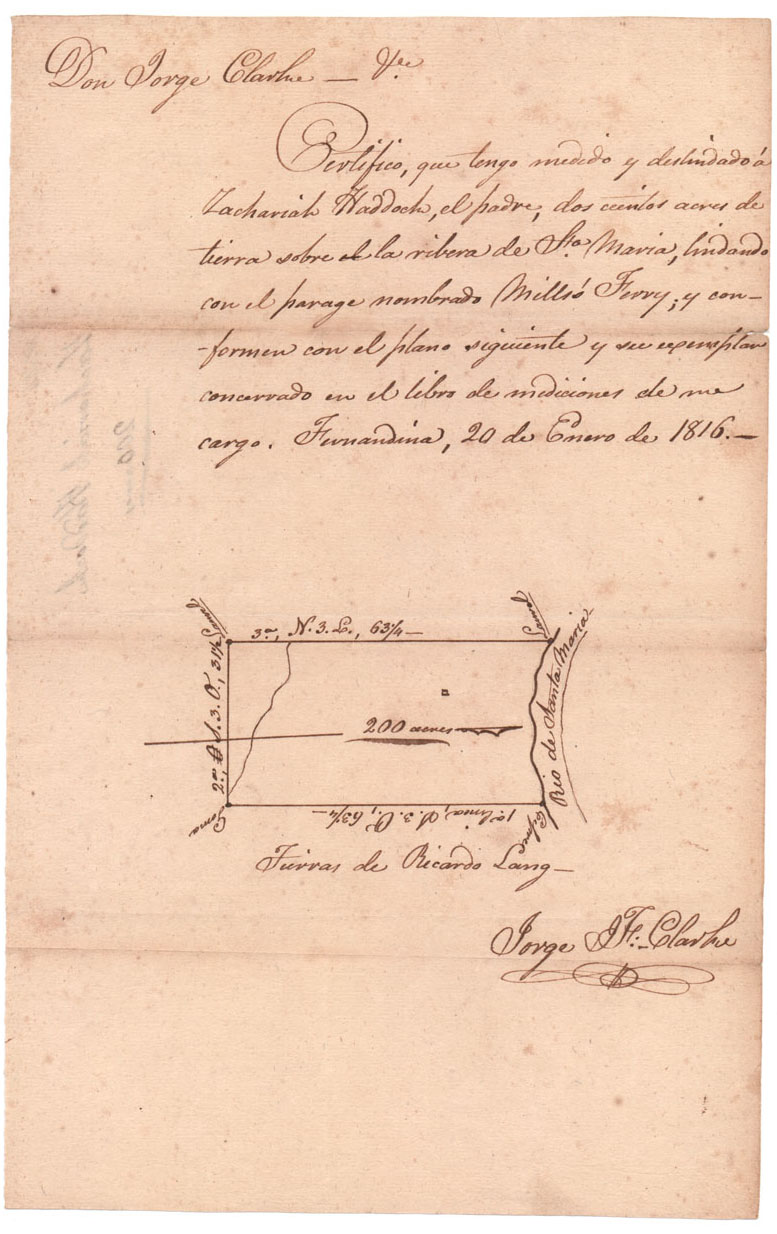 Don Jorge Clarke — &c
Certifico, que tengo medido y deslindado á
Zachariah Haddock, el padre, dos cientos acres de
tierra sobre el la ribera de Sta. Maria, lindando
con el parage nombrado Mills's Ferry; y con-
-formen con el plano siguiente y su exemplar
concervado en el libro de mediciones de me
cargo. Fernandina, 20 de Enero de 1816.—
Laurel
Laurel
3a., N. 3. L., 63¼—
2a., S. 3. O., 31½
200 acres
Rio de Santa Maria
1a. linea, S. 3. O., 63¼—
Goma
Cipres
Tierras de Ricardo Lang—
Jorge J. F. Clarke
200